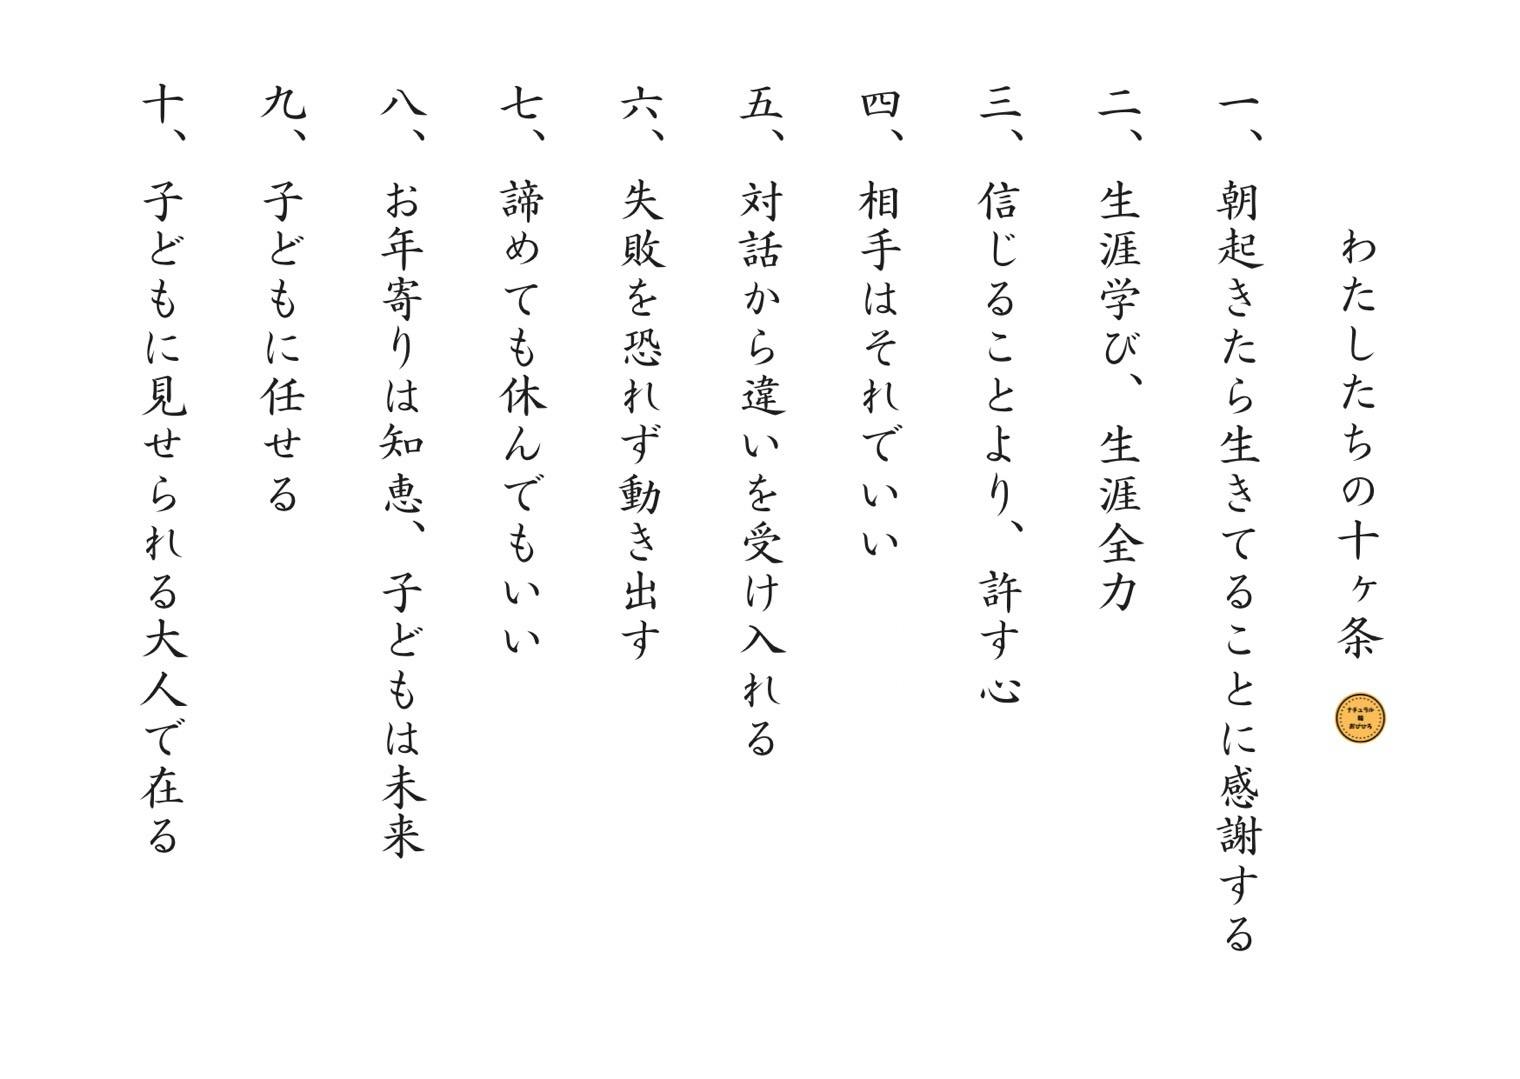 わたしたちの十ヶ条
ナチュラル
輪
おびひろ
一、朝起きたら生きてることに感謝する
二、生涯学び、生涯全力
三、信じることより、許す心
四、相手はそれでいい
五、対話から違いを受け入れる
六、失敗を恐れず動き出す
七、諦めても休んでもいい
八、お年寄りは知恵、子どもは未来
九、子どもに任せる
十、子どもに見せられる大人で在る